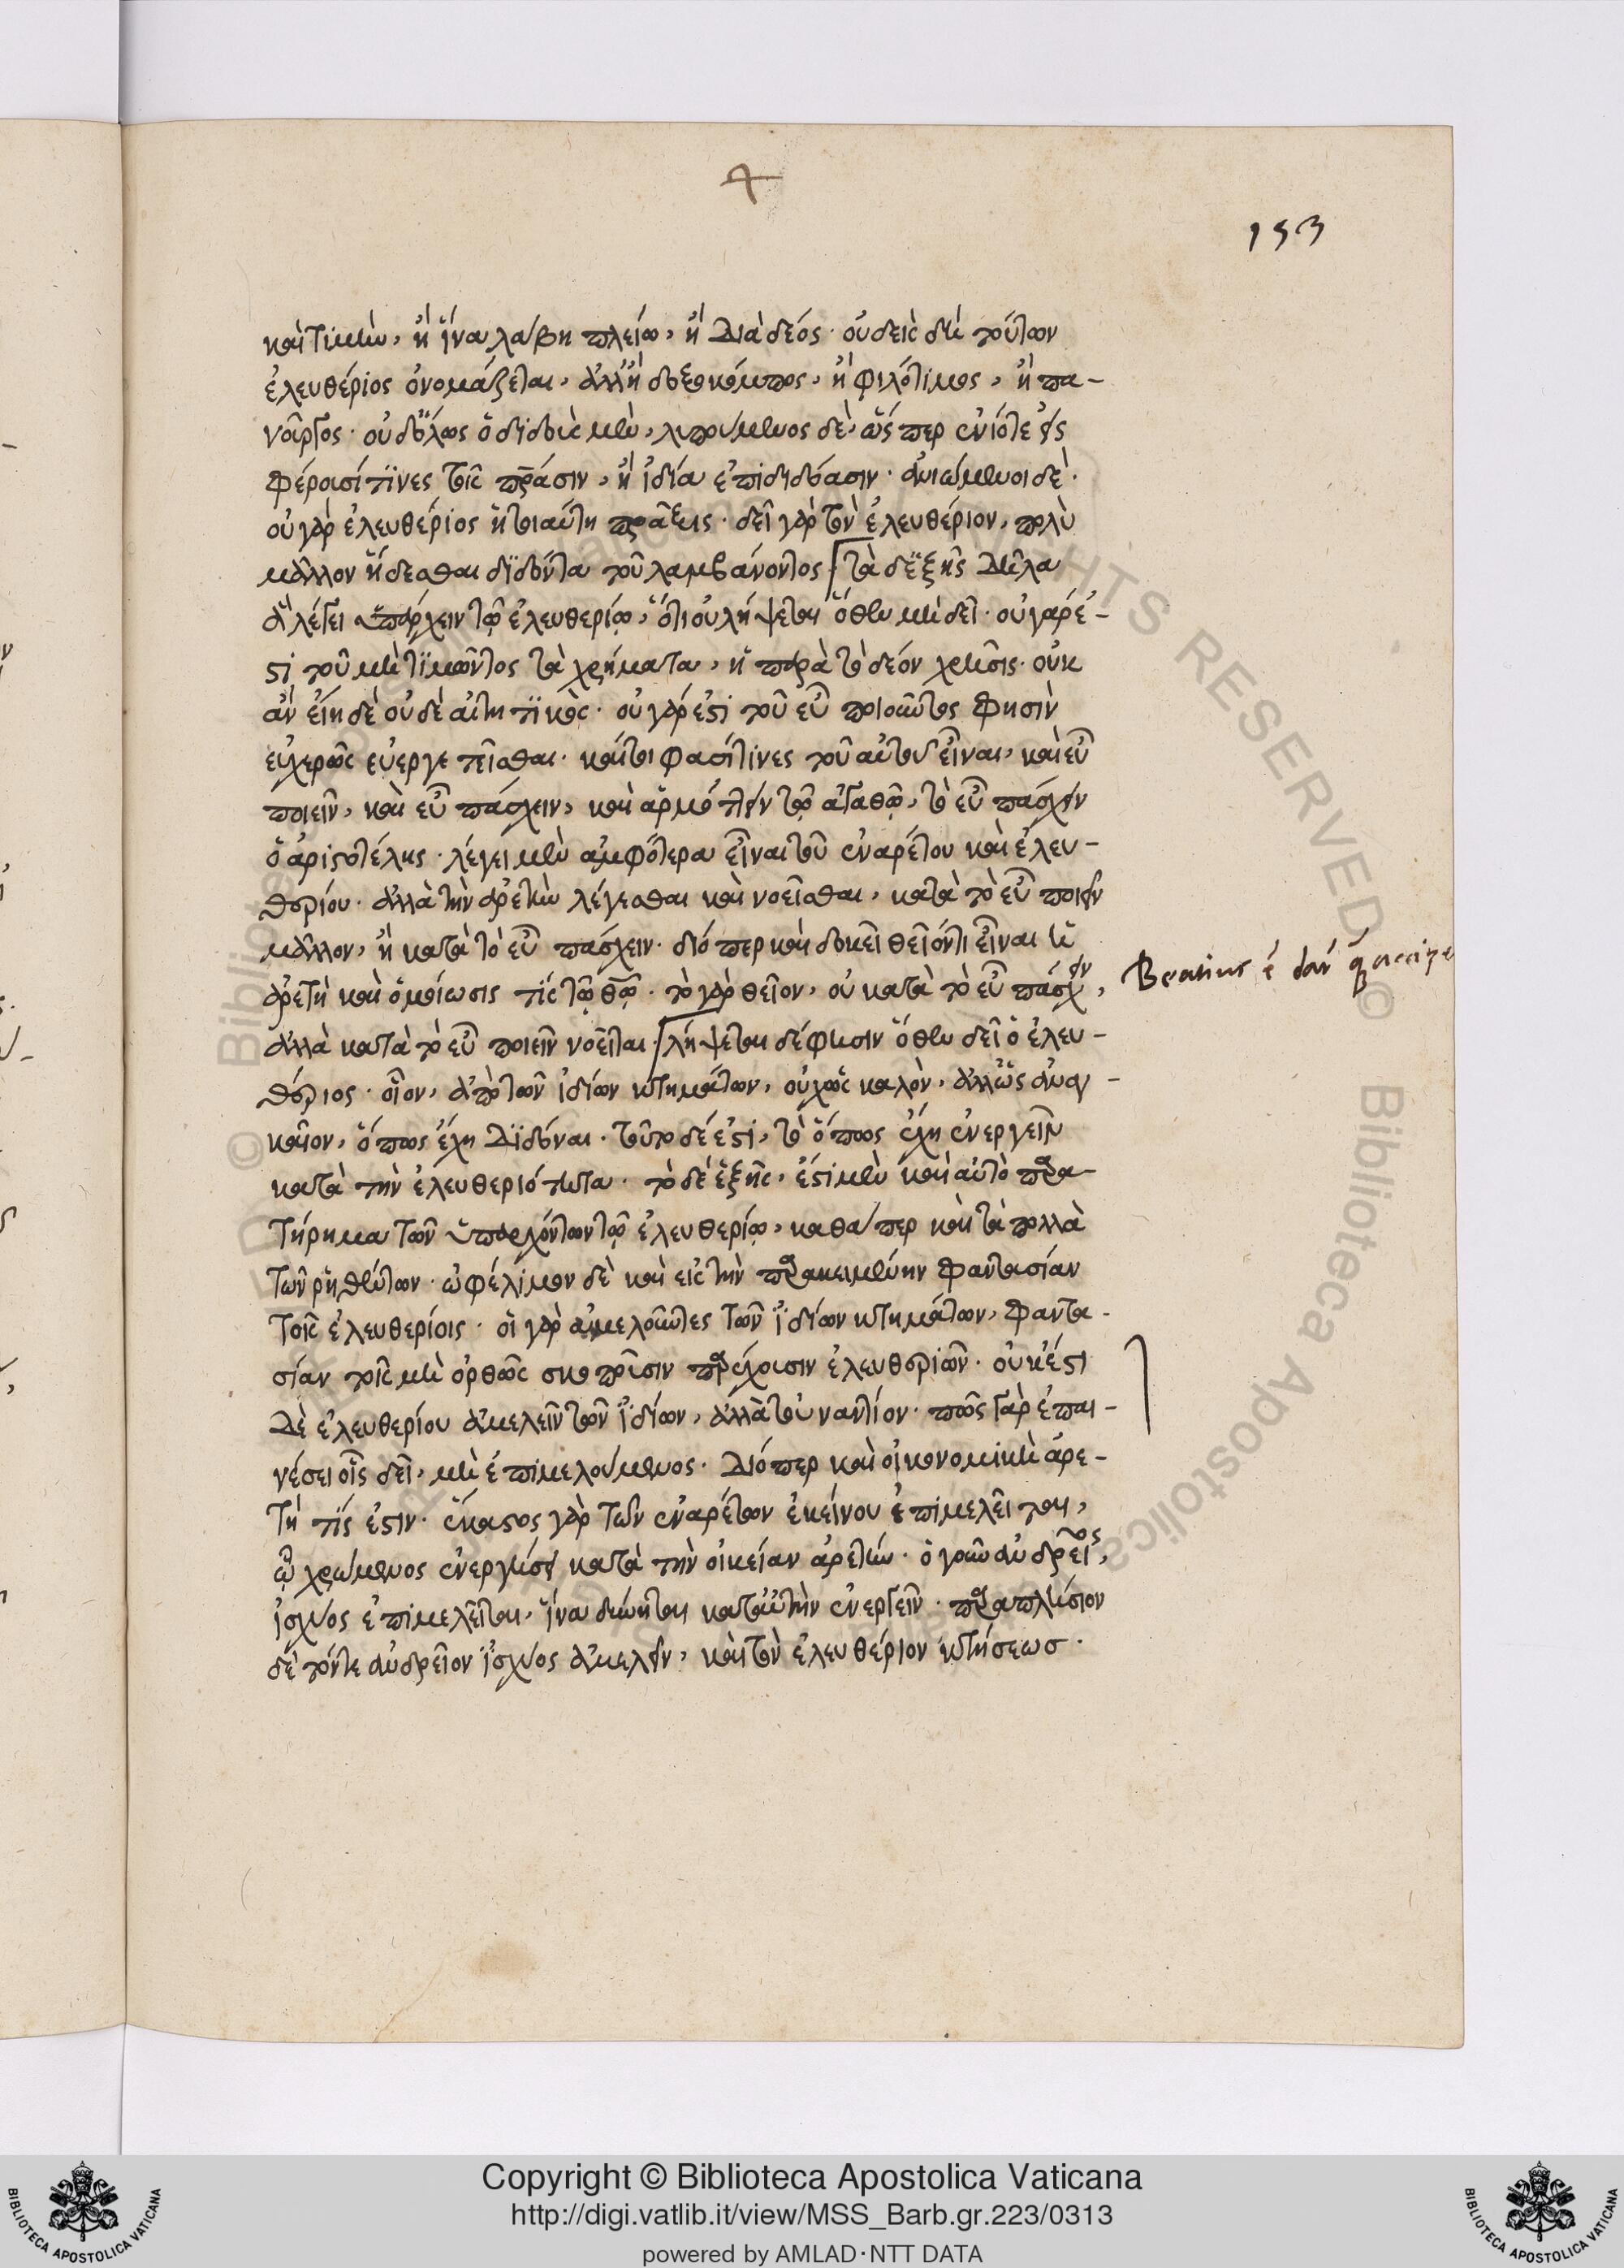 153
καὶ τιμὴν, ἢ ἵνα λάβη πλείω, ἢ διὰ δέος· οὐδεὶς δὴ τούτων
ἐλευθέριος ὀνομάζεται, ἀλλ' ἢ δοξοκόμπος, ἢ φιλότιμος, ἢ πα-
νοῦργος· οὐδ' ὅλως ὁ διδοὺς μὲν, λυπούμενος δὲ, ὥσπερ ἐνίοτε εἰσ
φέρουσί τινες τοῖς πράσιν, ἢ ἰδία ἐπιδιδόασιν· ἀνιώμενοι δὲ·
οὐ γὰρ ἐλευθέριος ἡ τοιαύτη πρᾶξις· δεῖ γὰρ τὸν ἐλευθέριον, πολὺ
μᾶλλον ἥδεσθαι διδόντα τοῦ λαμβάνοντος τὰ δ' ἑξῆς δῆλα
ἃ λέγει ὑπάρχειν τῷ ἐλευθερίῳ, ὅτι οὐ λήψεται ὅθεν μὴ δεῖ· οὐ γάρ ἐ-
στι τοῦ μὴ τιμῶντος τὰ χρήματα, ἡ παρὰ τὸ δέον χρῆσις· οὐκ
ἂν εἴη δὲ οὐδὲ αἰτητικὸς· οὐ γάρ ἐστι τοῦ εὖ ποιοῦντος φησὶν
εὐχερῶς εὐεργετεῖσθαι· καίτοι φασί τινες τοῦ αὐτοῦ εἶναι, καὶ εὖ
ποιεῖν, καὶ εὖ πάσχειν, καὶ ἁρμόττειν τῷ ἀγαθῷ, τὸ εὖ πάσχειν
ὁ ἀριστοτέλης· λέγει μὲν ἀμφότερα εἶναι τοῦ ἐναρέτου καὶ ἐλευ-
θερίου· ἀλλὰ τὴν ἀρετὴν λέγεσθαι καὶ νοεῖσθαι, κατὰ τὸ εὖ ποιεῖν
μᾶλλον, ἢ κατὰ τὸ εὖ πάσχειν· διόπερ καὶ δοκεῖ θεῖόν τι εἶναι ἡ
ἀρετὴ καὶ ὁμοίωσις τίς τῷ θῶ· τὸ γὰρ θεῖον, οὐ κατὰ τὸ εὖ πάσχειν,
Beatius é daŕ q̃ accipe
ἀλλὰ κατὰ τὸ εὖ ποιεῖν νοεῖται λήψεται δέ φησιν ὅθεν δεῖ ὁ ἐλευ-
θέριος· οἷον, ἀπὸ τῶν ἰδίων κτημάτων, οὐχ ὡς καλὸν, ἀλλ' ὡς ἀναγ-
καῖον, ὅπως ἔχη διδόναι· τοῦτο δέ ἐστι, τὸ ὅπως ἔχη ἐνεργεῖν
κατὰ τὴν ἐλευθεριότητα· τὸ δὲ ἑξῆς, ἔστι μὲν καὶ αὐτὸ παρα-
τήρημα τῶν ὑπαρχόντων τῷ ἐλευθερίῳ, καθάπερ καὶ τὰ πολλὰ
τῶν ῥηθέντων· ὠφέλιμον δὲ καὶ εἰς τὴν παρακειμένην φαντασίαν
τοῖς ἐλευθερίοις· οἱ γὰρ ἀμελοῦντες τῶν ἰδίων κτημάτων, φαντα-
σίαν τοῖς μὴ ὀρθῶς σκοποῦσιν παρέχουσιν ἐλευθερίων· οὐκ ἔστι
δὲ ἐλευθερίου ἀμελεῖν τῶν ἰδίων, ἀλλὰ τοὐναντίον· πῶς γὰρ ἐπαι-
νέσει οἷς δεῖ, μὴ ἐπιμελούμενος· διόπερ καὶ οἰκονομικὴ ἀρε-
τή τίς ἐστιν· ἕκαστος γὰρ τῶν ἐναρέτων ἐκείνου ἐπιμελεῖται,
ᾧ χρώμενος ἐνεργήσει κατὰ τὴν οἰκείαν ἀρετήν· ὁ γοῦν ἀνδρεῖος,
ἰσχύος ἐπιμελεῖται, ἵνα δύνηται κατ' αὐτὴν ἐνεργεῖν· παραπλήσιον
δὲ τόν τε ἀνδρεῖον ἰσχύος ἀμελεῖν, καὶ τὸν ἐλευθέριον κτήσεως·
Copyright © Biblioteca Apostolica Vaticana
http://digi.vatlib.it/view/MSS_Barb.gr.223/0313
powered by AMLAD·NTT DATA